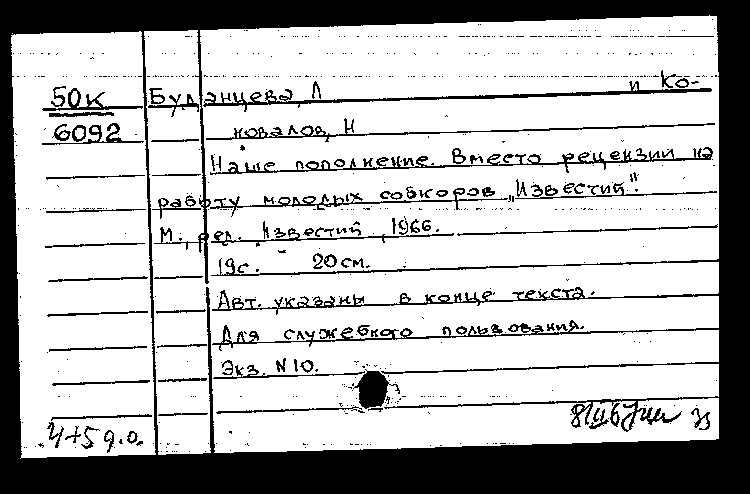 50к Буданцева, Л и Ко-
6092 новалов, Н
Наше пополнение. Вместо рецензии на
работу молодых собкоров „Известий".
М., ред. „Известий", 1966.
19с. 20 см.
Авт. указаны в конце текста.
Для служебного пользования.
Экз. N 10.
4+5 д.о.